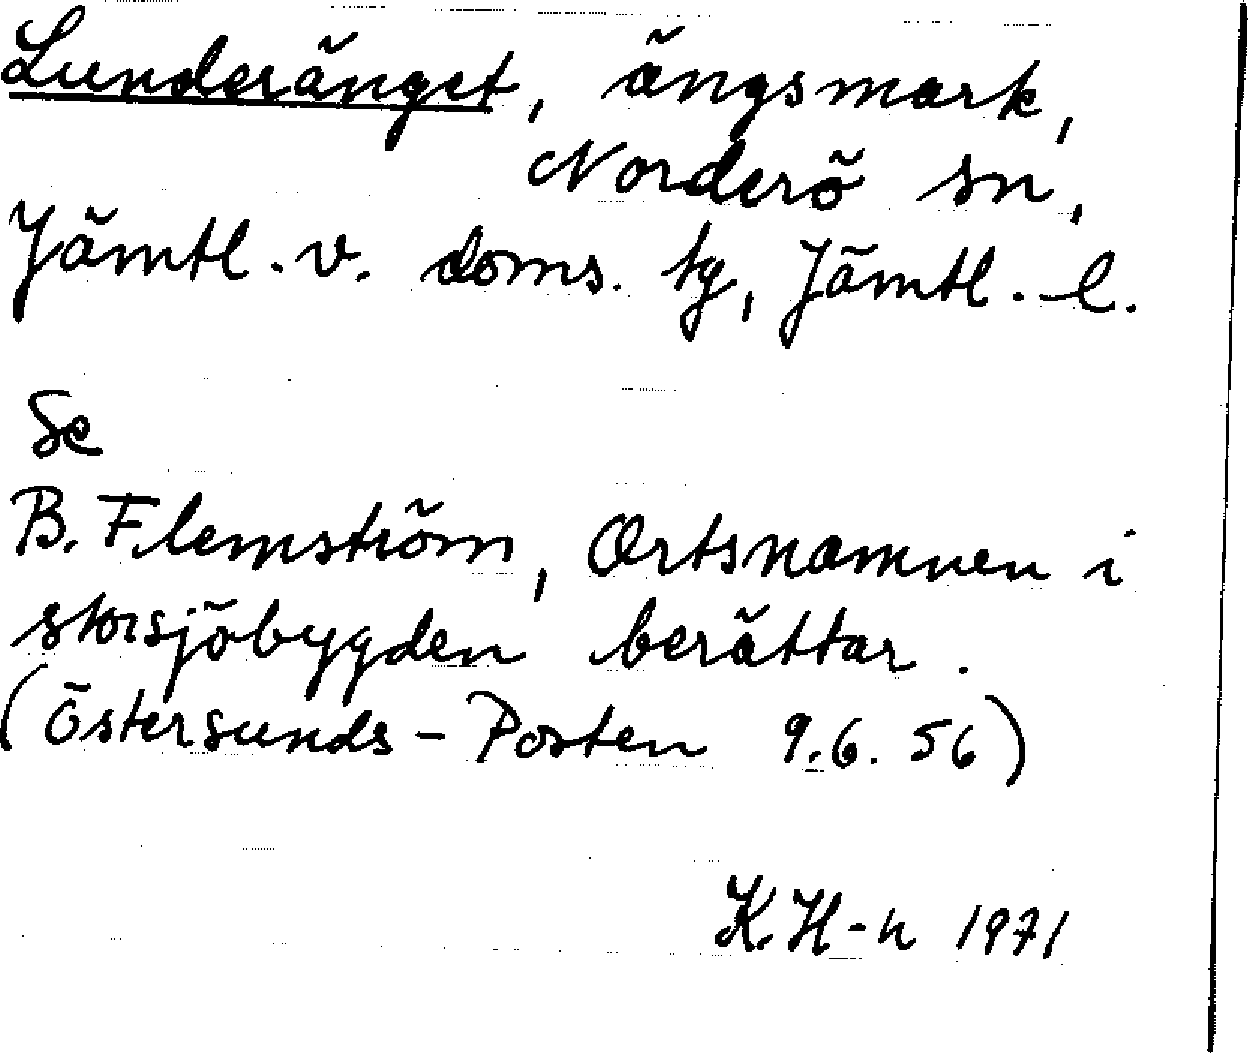 Lunderänget, ängsmark,
Norderö sn,
Jämtl. v. doms. tg, Jämtl. l.
Se
B. Flemström, Ortsnamnen i
storsjöbygden berättar.
(Östersunds-Posten 9.6.56)
K. H-n 1971